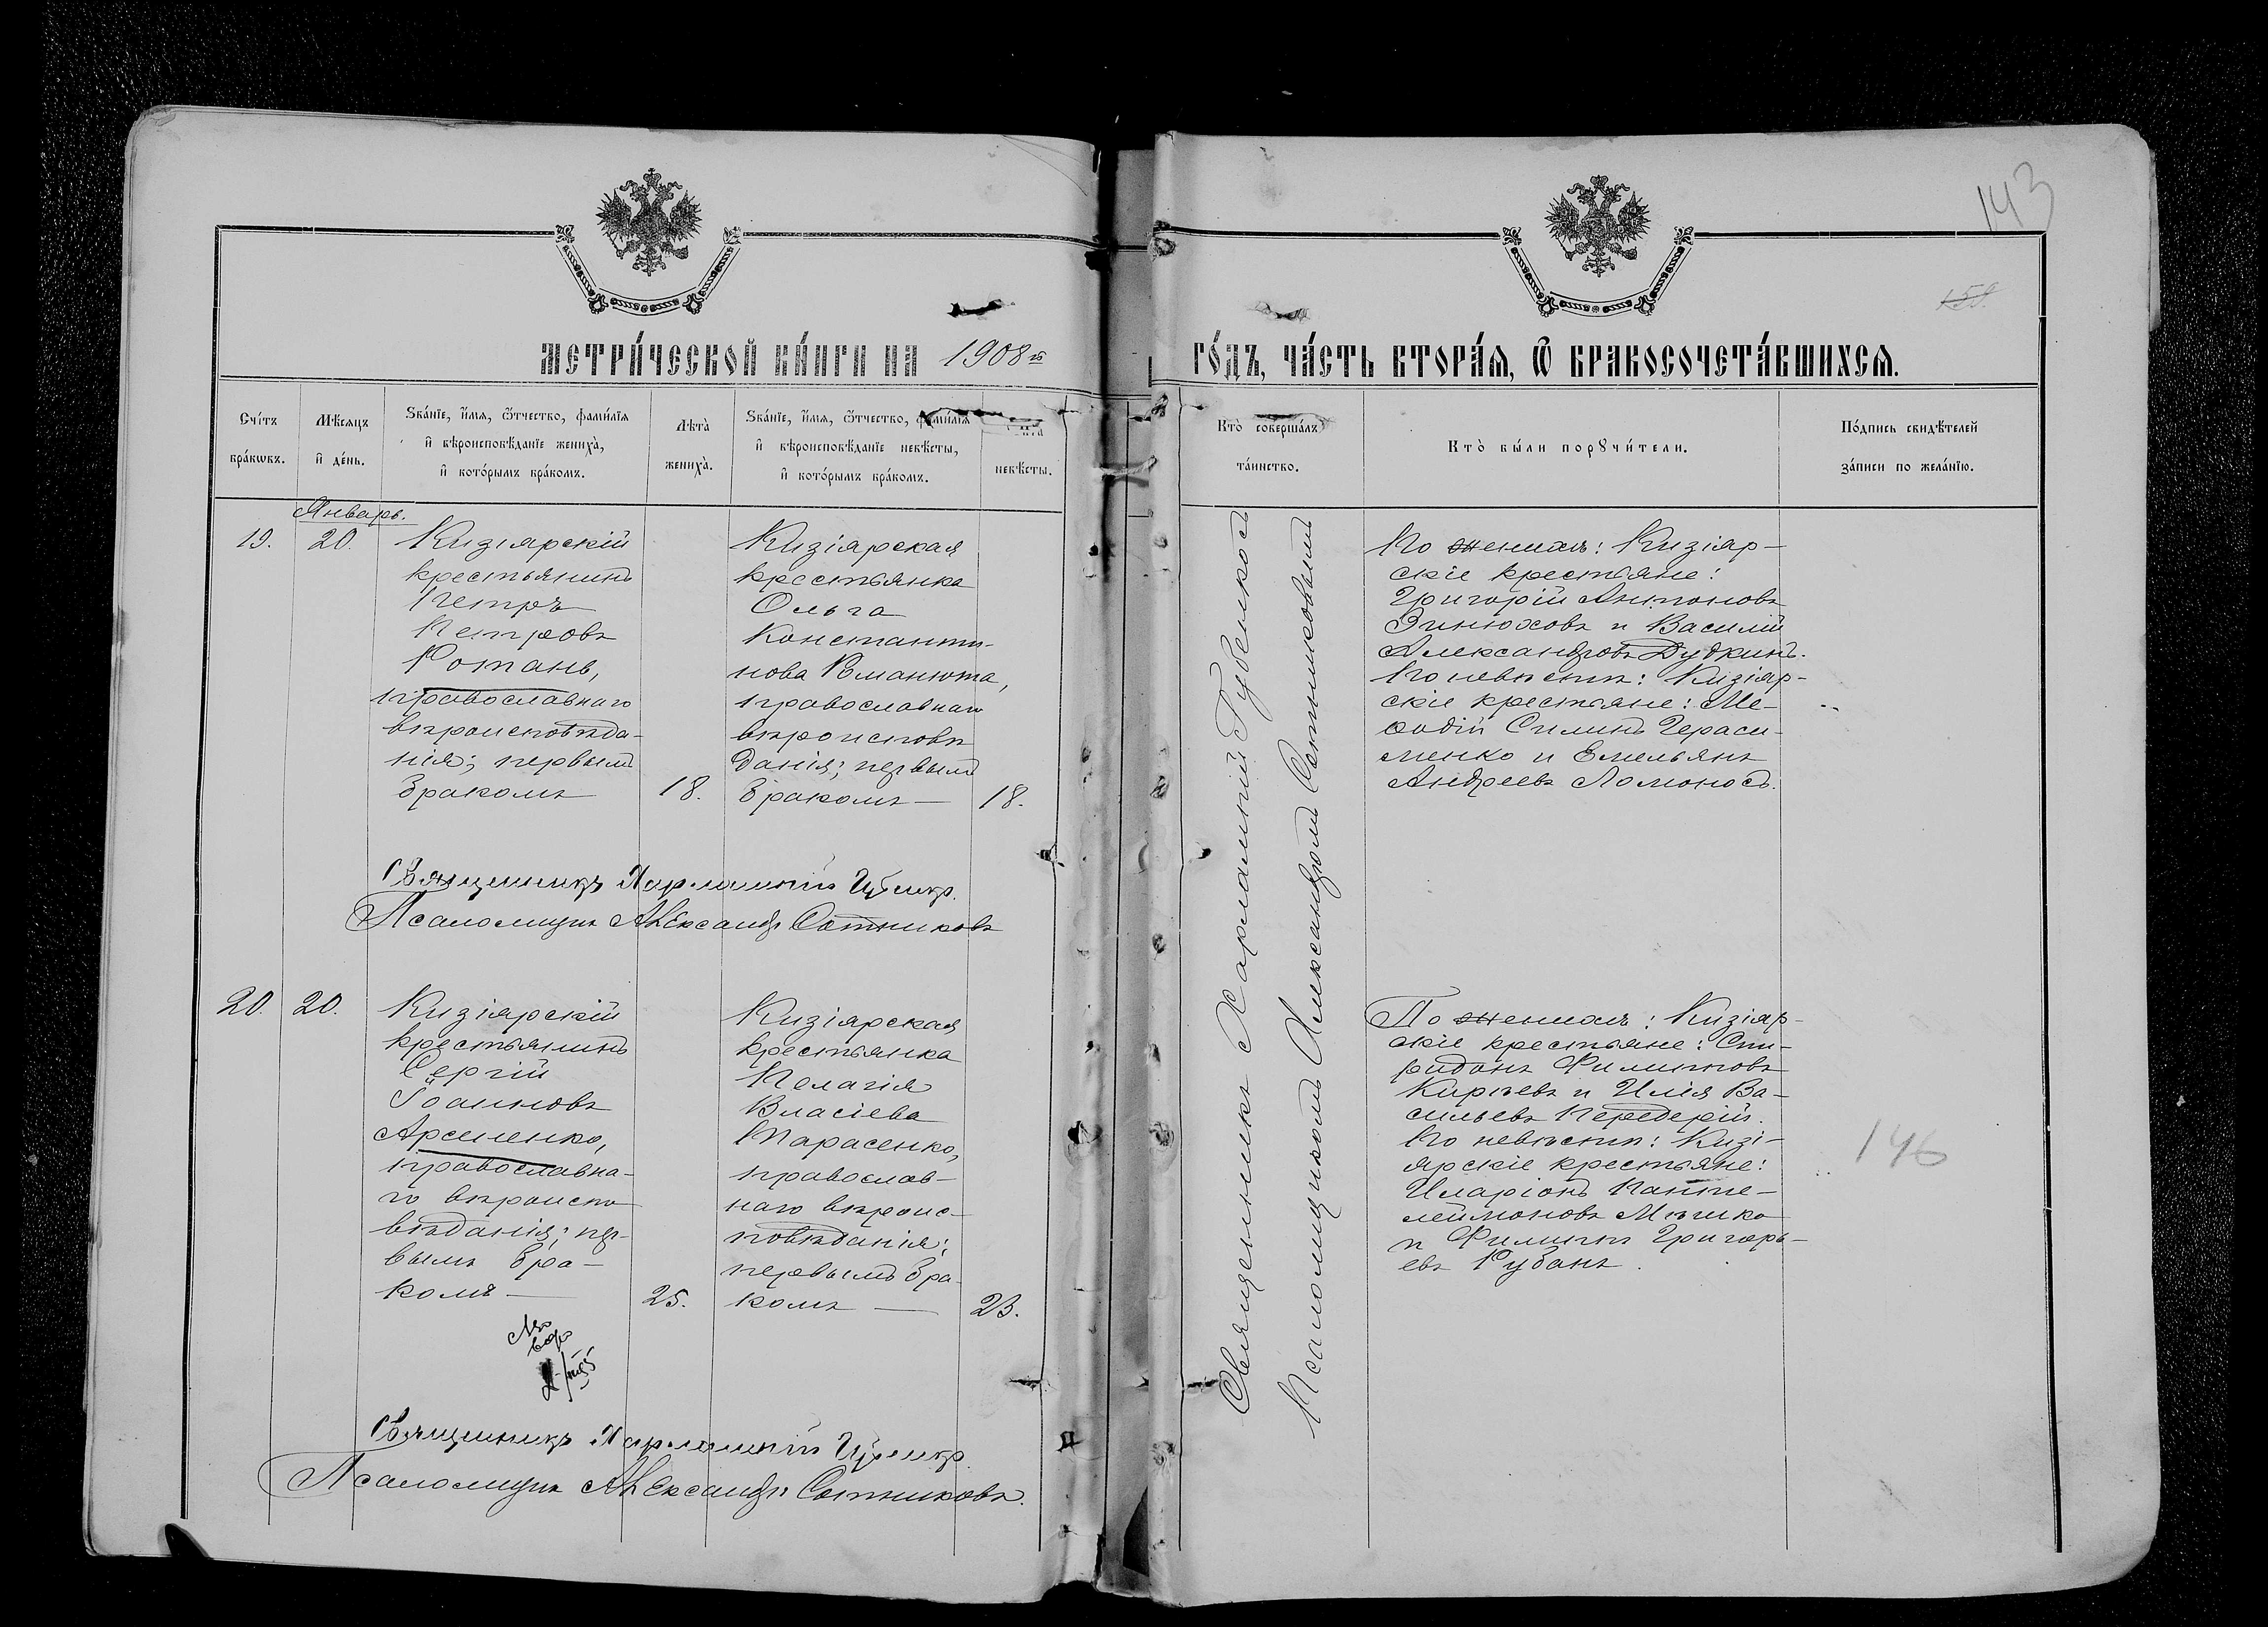 143
159.
МЕТРИ́ЧЕСКОЙ КНИ́ГИ НА 1908й ГО́ДЪ, ЧА́СТЬ ВТОРА́Я, Ѿ БРАКОСОЧЕТА́ВШИХСЯ.
Сче́тъ бра́кѡвъ.
Мѣ́сяцъ и҆ де́нь.
Ѕва́нїе, и҆́мя, ѻ҆́тчество, фами́лїя
и҆ вѣроисповѣ́данїе жениха̀,
и҆ кото́рымъ бра́комъ.
Лѣта̀ жениха̀.
Ѕва́нїе, и҆́мя, ѻ҆́тчество, фами́лїя
и҆ вѣроисповѣ́данїе невѣ́сты,
и҆ кото́рымъ бра́комъ.
невѣ́сты.
Кто̀ соверша́лъ
та́инство.
Кто̀ бы́ли порꙋчи́тели.
По́дпись свидѣ́телей
за́писи по жела́нїю.
Январь.
19. 20.
Кизіярскій
крестьянинъ
Петръ
Петровъ
Ротань,
православнаго
вѣроисповѣда-
нія; первымъ
бракомъ
18.
Кизіярская
крестьянка
Ольга
Константи-
нова Романюта,
православнаго
вѣроисповѣ
данія; первымъ
бракомъ —
18.
По женихѣ: Кизіяр-
скіе крестьяне:
Григорій Антоновъ
Зинюховъ и Василій
Александровъ Дудкинъ.
По невѣстѣ: Кизіяр-
скіе крестьяне: Ме-
ѳодій Силинъ Гераси-
менко и Емельянъ
Андреевъ Ломоносъ.
Священникъ Харлампій Губенко.
Псаломщикъ Александръ Сотниковъ
20. 20.
Кизіярскій
крестьянинъ
Сергій
Іоанновъ
Арсененко,
православна-
го вѣроиспо
вѣданія; пер-
вымъ бра-
комъ —
25.
Кизіярская
крестьянка
Пелагія
Власіева
Тарасенко,
православ-
наго вѣроис-
повѣданія;
первымъ бра-
комъ —
23.
По женихѣ: Кизіяр-
скіе крестьяне: Спи-
ридонъ Филиповъ
Кирѣевъ и Илія Ва-
сильевъ Передерій.
По невѣстѣ: Кизі-
ярскіе крестьяне:
Иларіонъ Панте-
леймоновъ Мѣшко
и Филиппъ Григорь-
евъ Рубанъ.
146
Священникъ Харлампій Губенко.
Псаломщикъ Александръ Сотниковъ.
Священникъ Харлампій Губенко съ
Псаломщикомъ Александромъ Сотниковымъ